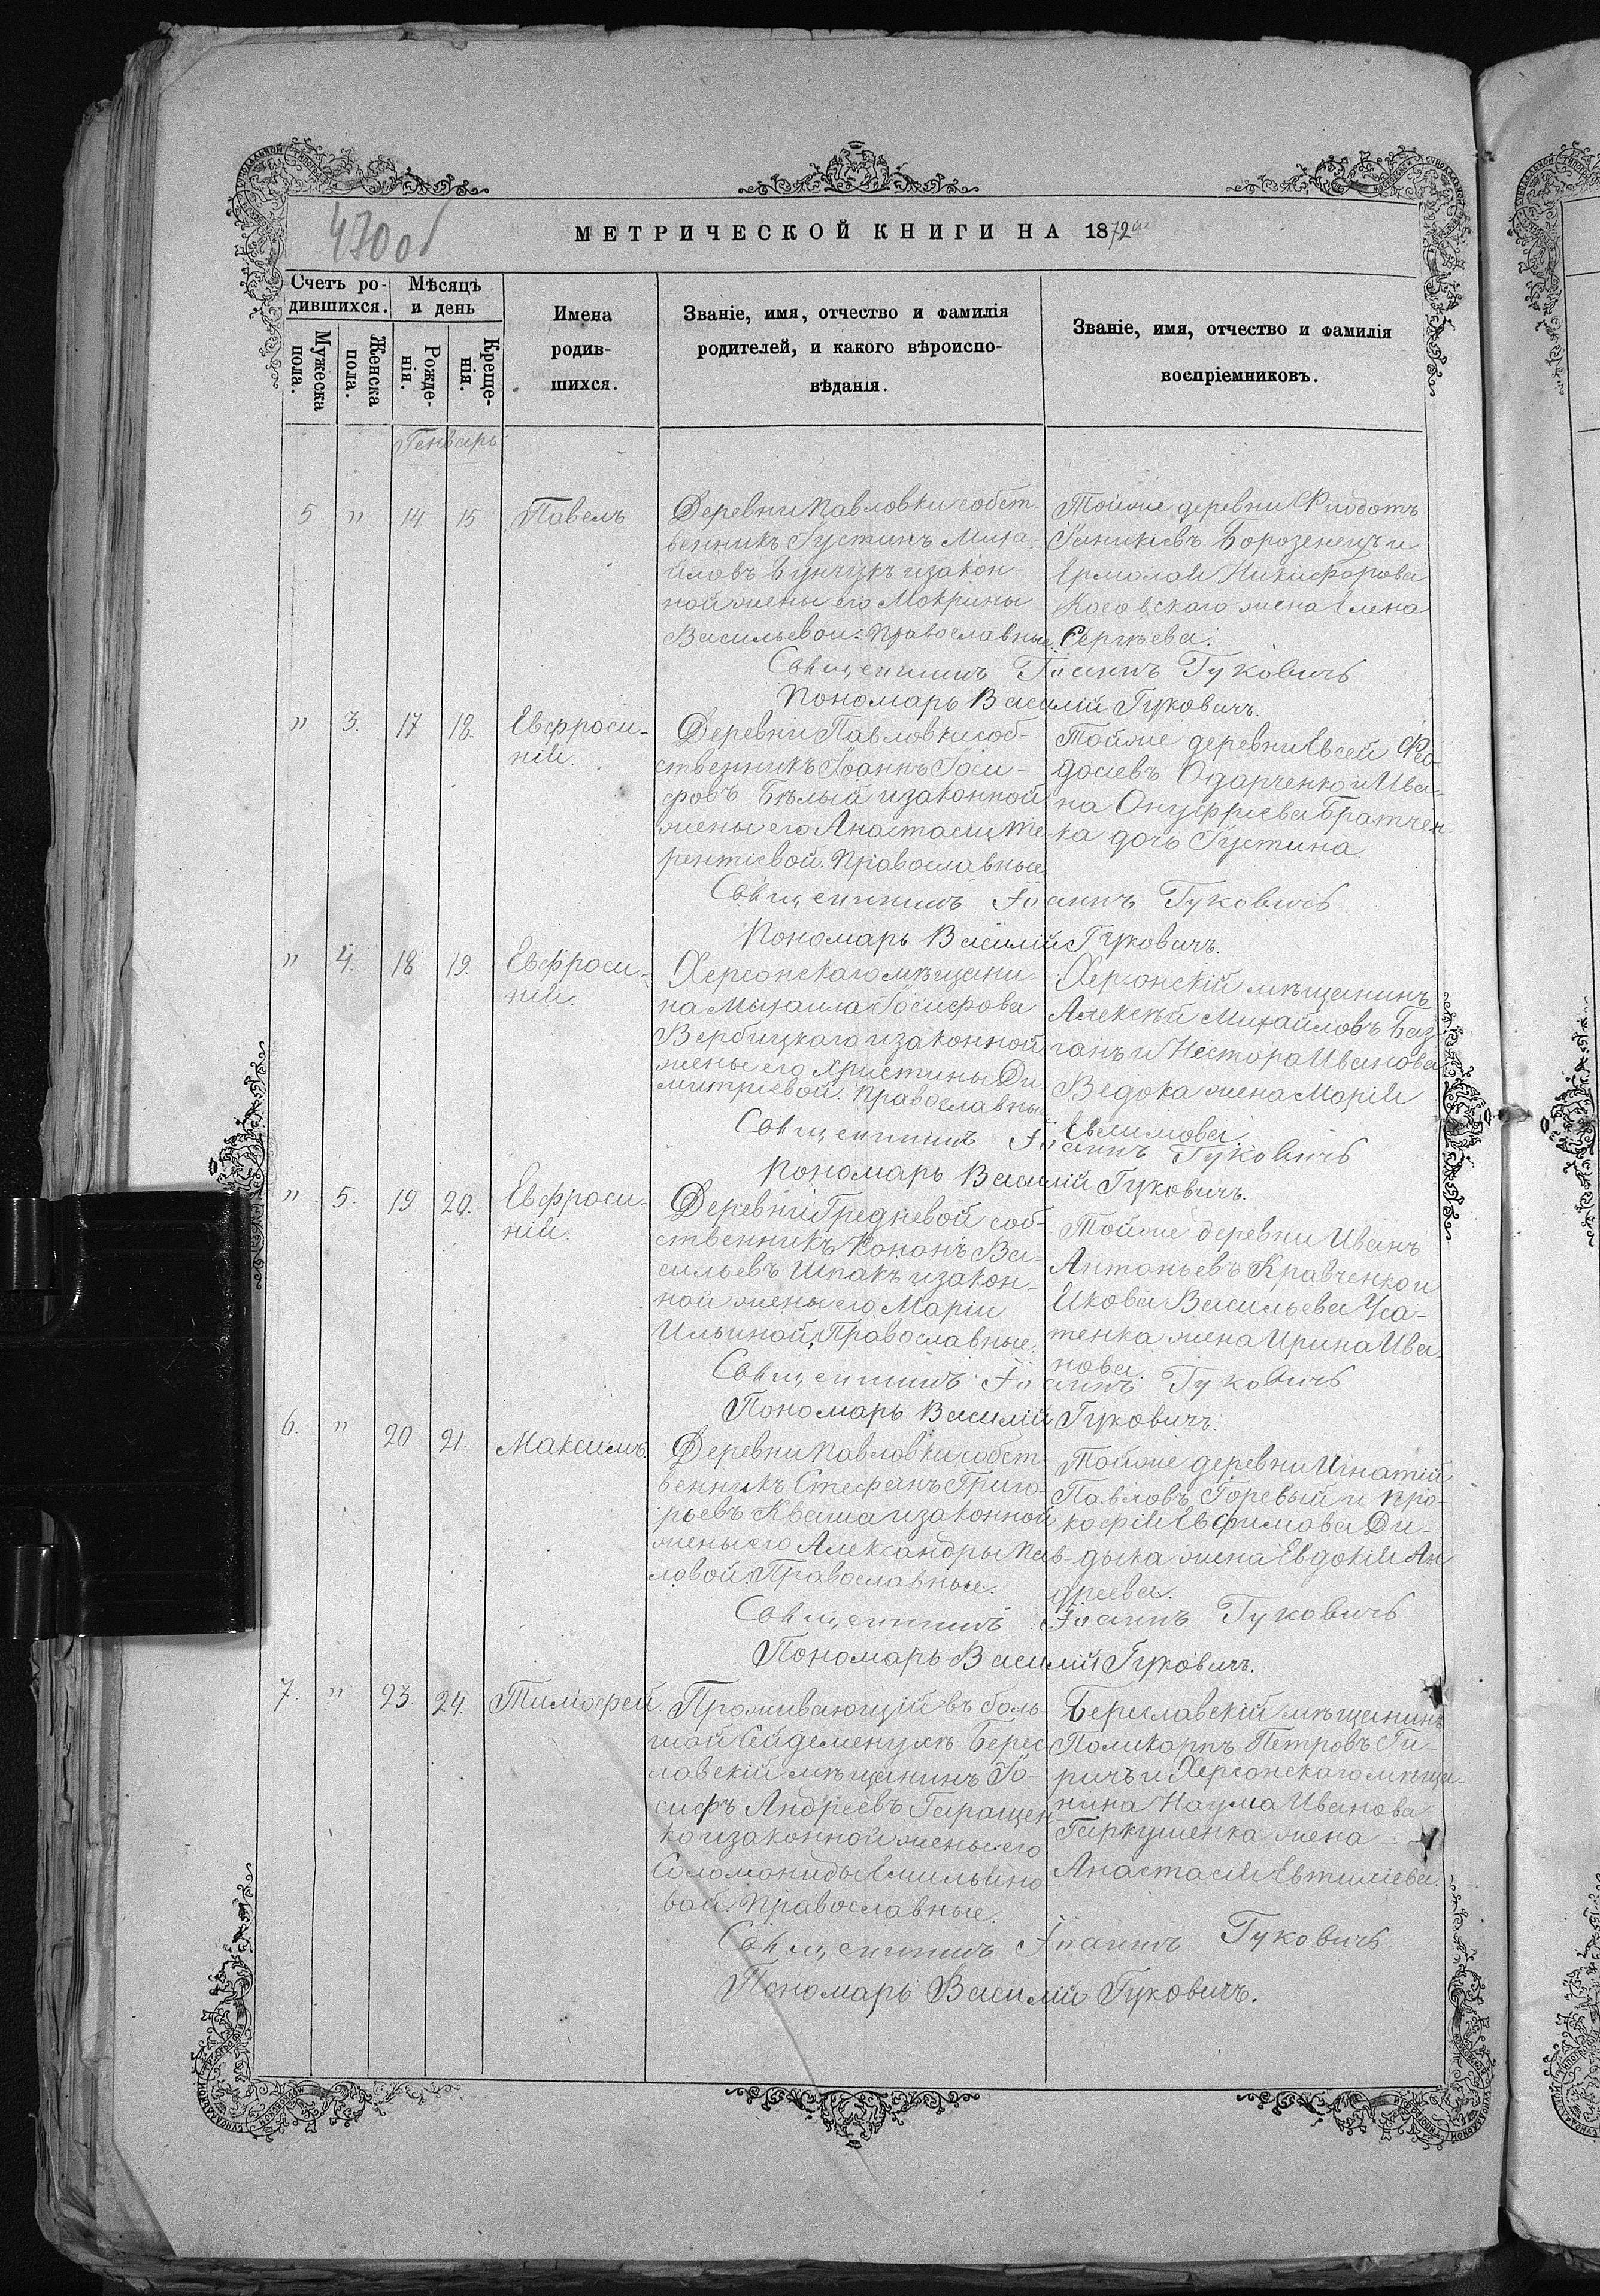 470об
МЕТРИЧЕСКОЙ КНИГИ НА 1872й
Счетъ ро-
дившихся.
Мѣсяцъ
и день
Мужеска
пола.
Женска
пола.
Рожде-
нія.
Креще-
нія.
Имена
родив-
шихся.
Званіе, имя, отчество и фамилія
родителей, и какого вѣроиспо-
вѣданія.
Званіе, имя, отчество и фамилія
воспріемниковъ.
Генварь
5 " 14 15 Павелъ
Деревни Павловки собст
венникъ Іустинъ Миха-
иловъ Бунчукъ и закон-
ной жены его Мокрины
Васильевой. Православные
Тойже деревни
Іаникіевъ Борозенецъ и
Ермолая Никифорова
Косовскаго жена Елена
Сергѣева.
Священникъ Іоаннъ Гуковичъ
Пономарь Василій Гуковичъ.
" 3. 17 18. Евфроси-
нія.
Деревни Павловки соб-
ственникъ Іоаннъ Іоси-
фовъ Бѣлый и законной
жены его Анастасіи Те-
рентіевой. Православные
Тойже деревни Евсей Фео-
досіевъ Одарченко и Ива-
на Онуфріева Братчен-
ка дочь Іустина
Священникъ Іоаннъ Гуковичъ
Пономарь Василій Гуковичъ.
" 4. 18 19. Евфроси-
нія.
Херсонскаго мѣщани
на Михаила Іосифова
Вербицкаго и законной
жены его Христины Ди
митріевой. Православные
Херсонскій мѣщанинъ
Алексѣй Михайловъ Баз-
ганъ и Нестора Иванова
Ведока жена Марія
Евлимова.
Священникъ Іоаннъ Гуковичъ
Пономарь Василій Гуковичъ.
" 5. 19 20. Евфроси-
нія.
Деревни Гредневой соб-
ственникъ Кононъ Ва-
сильевъ Шпакъ и закон-
ной жены его Маріи
Ильиной, Православные.
Тойже деревни Иванъ
Антоньевъ Кравченко и
Якова Васильева Уса-
тенка жена Ирина Ива-
нова.
Священникъ Іоаннъ Гуковичъ
Пономарь Василій Гуковичъ.
6. " 20 21. Максимъ
Деревни Павловки собст
венникъ Стефанъ Григо-
рьевъ Кваша и законной
жены его Александры Пав-
ловой. Православные.
Тойже деревни Игнатій
Павловъ Горевый и Про-
кофія Евфимова Ди-
дыка жена Евдокія Ан
дреева.
Священникъ Іоаннъ Гуковичъ
Пономарь Василій Гуковичъ.
7. " 23. 24. Тимофей.
Проживающій въ боль-
шой Сейдеменухѣ Берес
лавскій мѣщанинъ Іо-
сифъ Андреевъ Гаращен
ко и законной жены его
Соломониды Емильяно-
вой. Православные.
Береславскій мѣщанинъ
Поликарпъ Петровъ Ги-
ричъ и Херсонскаго мѣща-
нина Наума Иванова
Гаркушенка жена
Анастасія Евтиміева.
Священникъ Іоаннъ Гуковичъ
Пономарь Василій Гуковичъ.